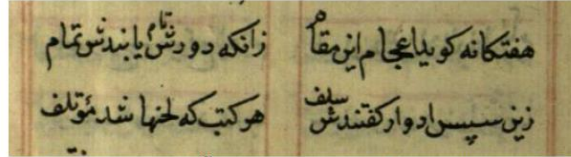 هفتکانه کوید اعجام این مقام زانکه دورش تام یابندش تمام
زین سپس ادوار کفتندش سلف هر کتب که لحنها شد مؤتلف